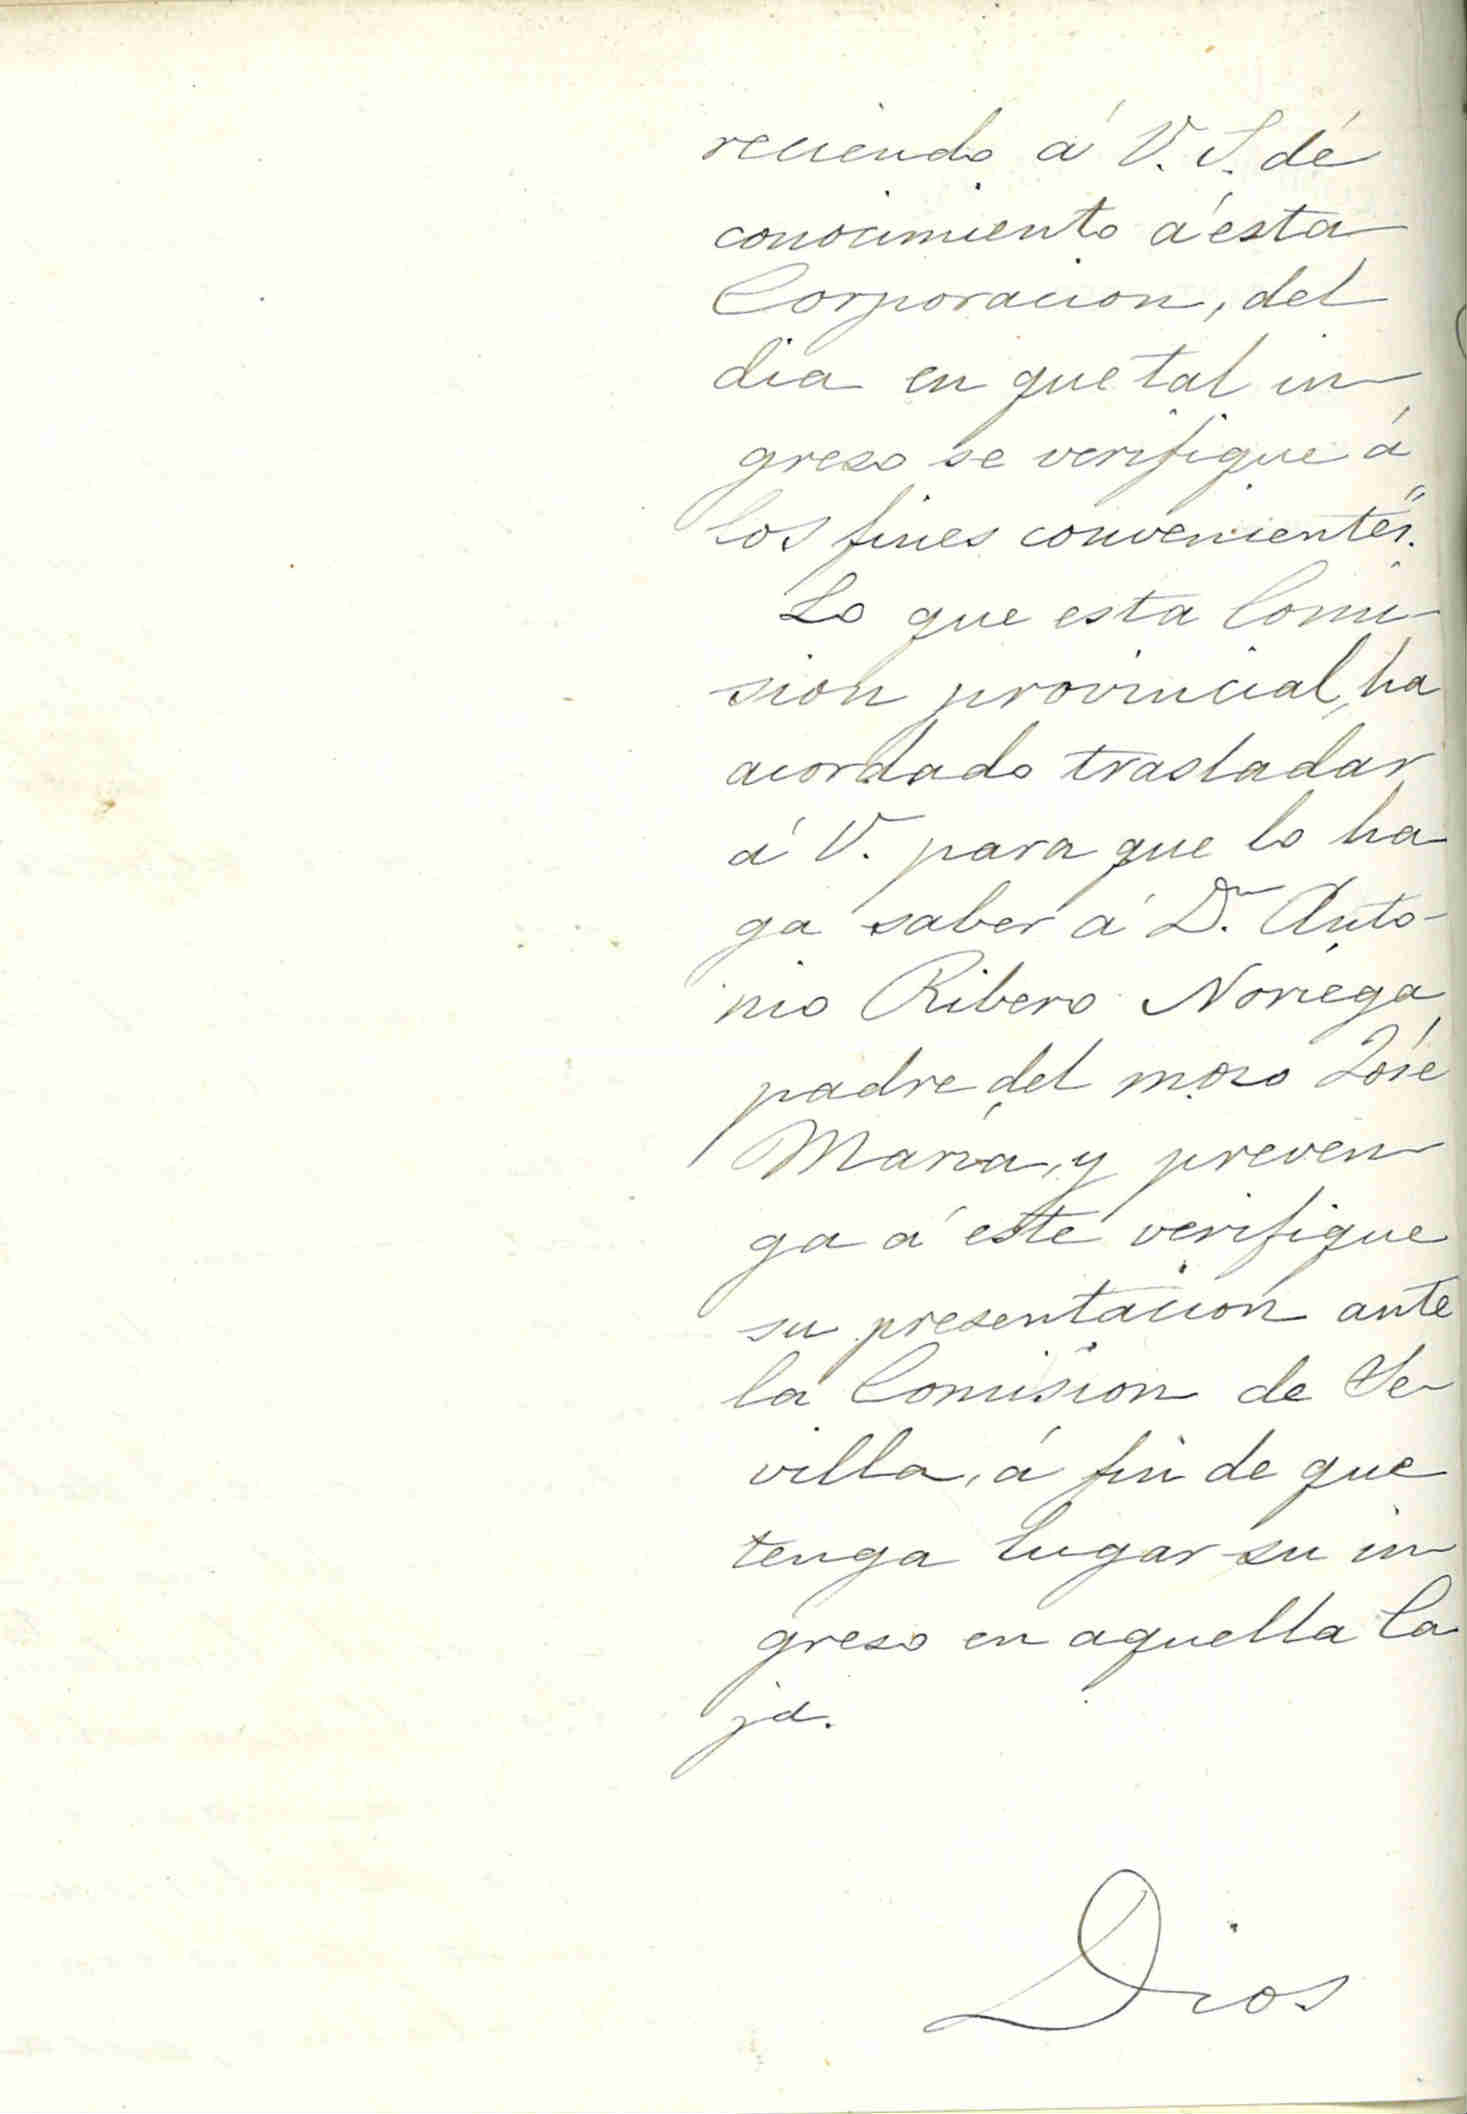 reciendo á V. S. dé
conocimiento á esta
Corporacion, del
dia en que tal in
greso se verifique á
los fines convenientes".
Lo que esta Comi
sion provincial, ha
acordado trasladar
á V. para que lo ha
ga saber á Dn. Anto-
nio Ribero Noriega,
padre del mozo José
Maria, y preven
ga á este verifique
su presentacion ante
la Comision de Se
villa, á fin de que
tenga lugar su in
greso en aquella Ca
ja.
Dios